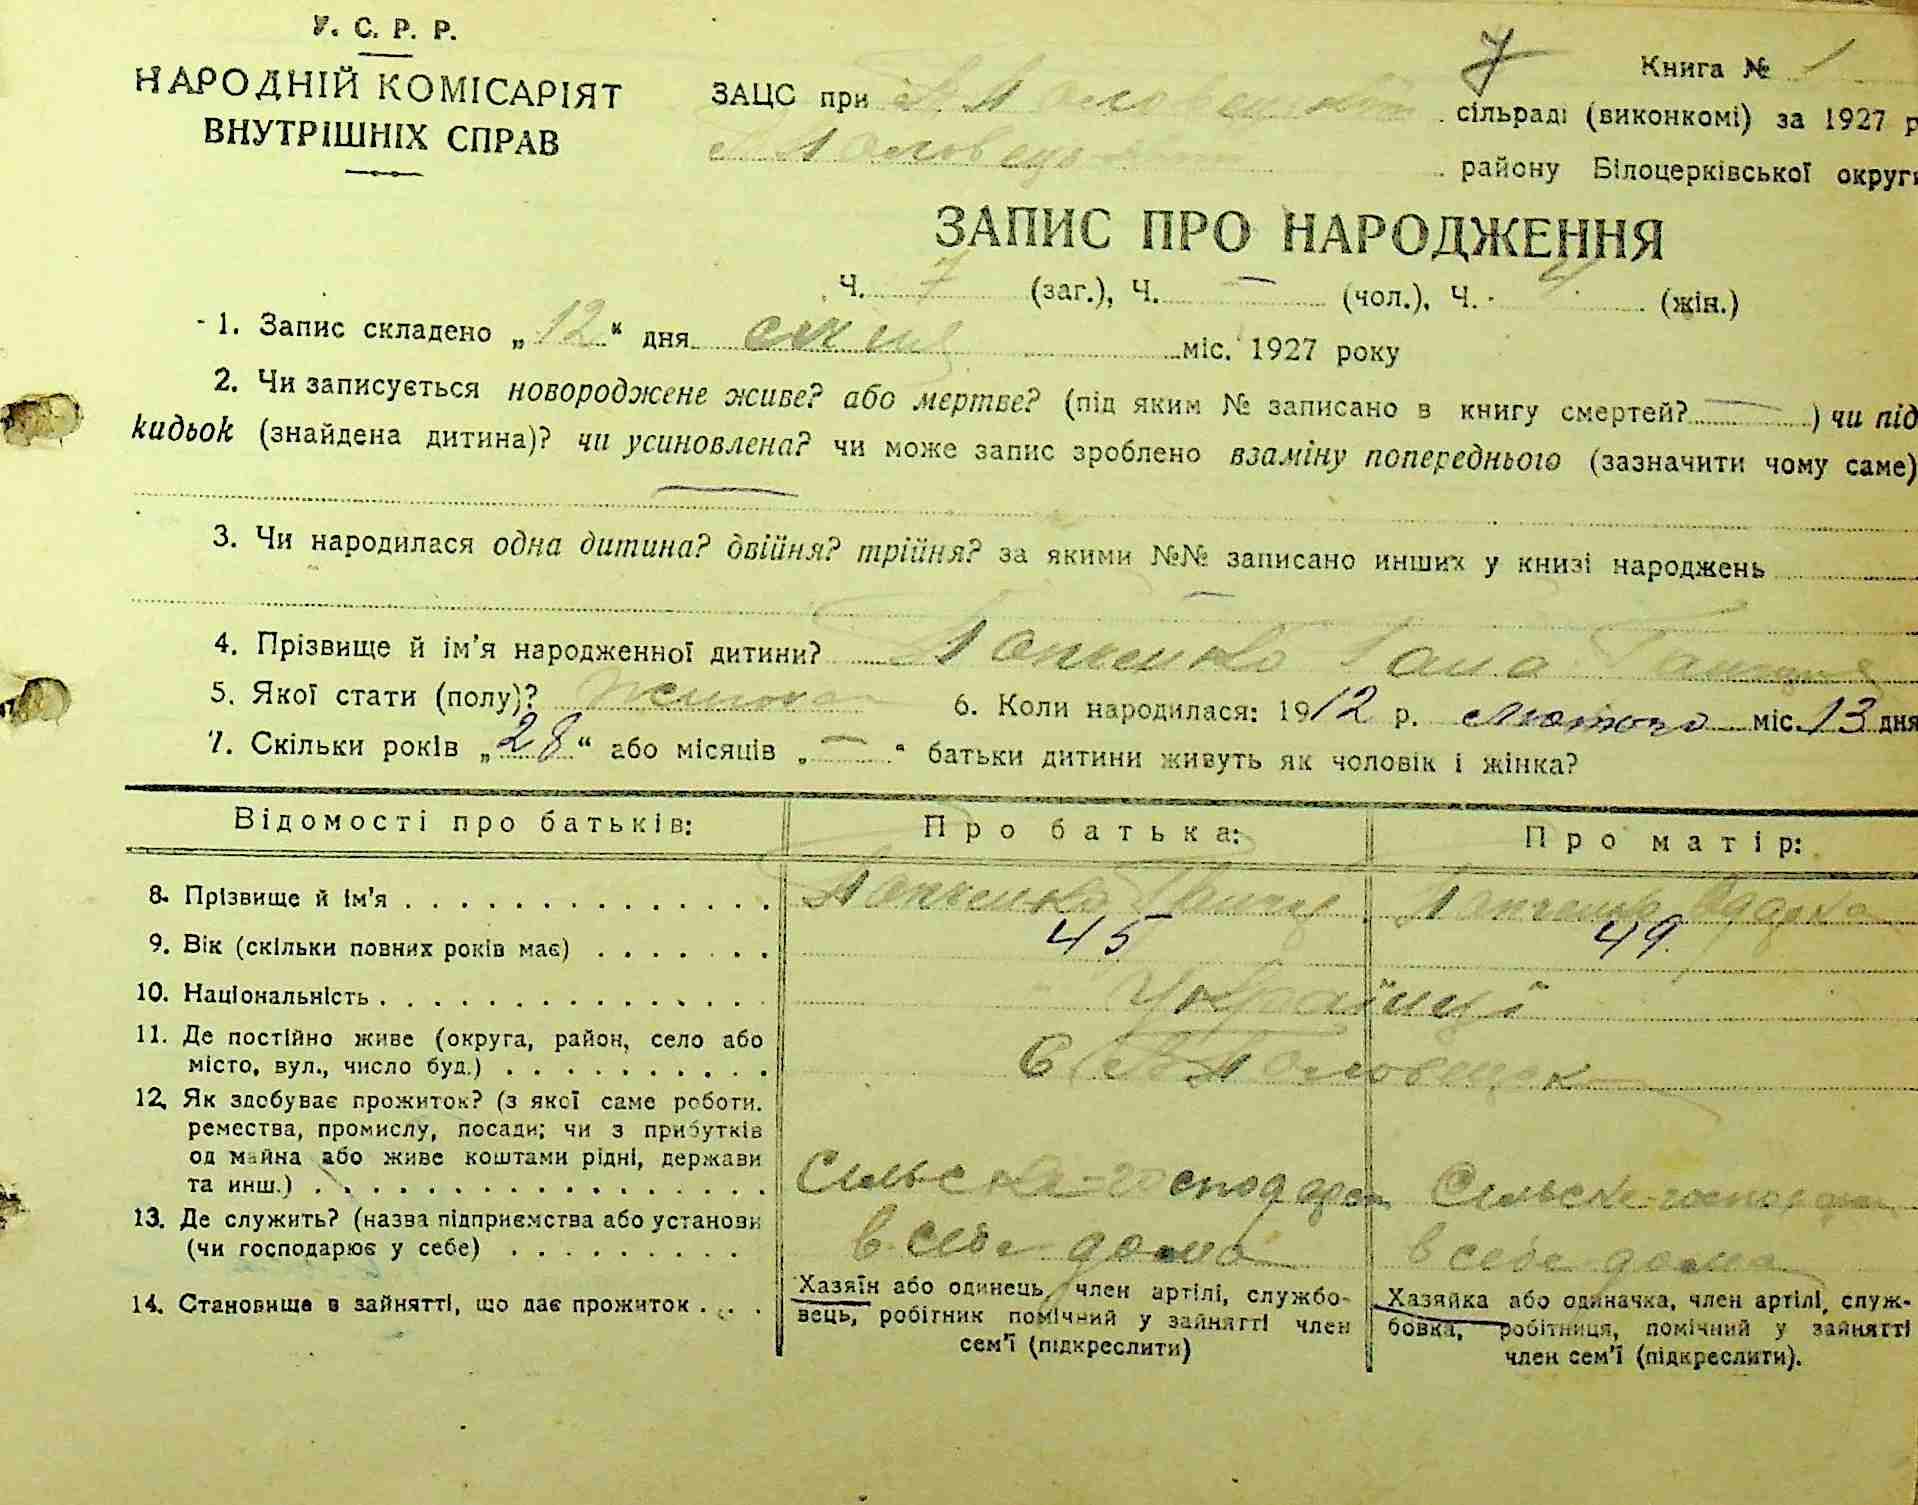 У. С. Р. Р.
НАРОДНІЙ КОМІСАРІЯТ
ВНУТРІШНІХ СПРАВ
7
Книга № 1
ЗАЦС при сільраді (виконкомі) за 1927 р
району Білоцерківської округи
ЗАПИС ПРО НАРОДЖЕННЯ
Ч. 7 (заг.), Ч. — (чол.), Ч. 4 (жін.)
1. Запис складено „12“ дня січня міс. 1927 року
2. Чи записується новороджене живе? або мертве? (під яким № записано в книгу смертей? — ) чи під
кидьок (знайдена дитина)? чи усиновлена? чи може запис зроблено взаміну попереднього (зазначити чому саме)
—
3. Чи народилася одна дитина? двійня? трійня? за якими №№ записано инших у книзі народжень
—
4. Прізвище й ім'я народженної дитини?
5. Якої стати (полу)? 6. Коли народилася: 1912 р. лютого міс. 13 дня
7. Скільки років „28“ або місяців „—“ батьки дитини живуть як чоловік і жінка?
Відомості про батьків: Про батька: Про матір:
8. Прізвище й ім'я
9. Вік (скільки повних років має) 45 49
10. Національність Українці
11. Де постійно живе (округа, район, село або
місто, вул., число буд.)
12. Як здобуває прожиток? (з якої саме роботи.
ремества, промислу, посади; чи з прибутків
од майна або живе коштами рідні, держави
та инш.)
13. Де служить? (назва підприємства або установи
(чи господарює у себе) в себе дома в себе дома
14. Становище в зайнятті, що дає прожиток
Хазяїн або одинець, член артілі, службо-
вець, робітник помічний у зайнятті член
сем'ї (підкреслити)
Хазяйка або одиначка, член артілі, служ-
бовка, робітниця, помічний у зайнятті
член сем'ї (підкреслити).